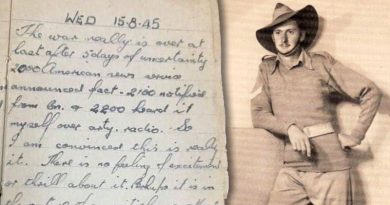 WED 15-8-45
The war really is over at
last after 5 days of uncertainty
2000 American news service
announced fact - 2100 notified
from Bn. & 2200 heard it
myself over arty. radio. So
I am convinced this is really
it. There is no feeling of excitement
or thrill about it. Perhaps it is in